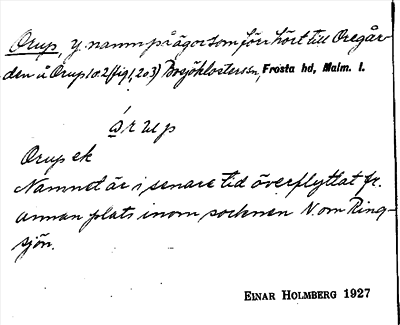 Orup, y. namn på ägor som förr hört till Oregår-
den å Orup 1 o. 2 (fig 1, 2 o 3) Bosjöklosters sn, Frosta hd, Malm. l.
órup
Orup ek
Namnet är i senare tid överflyttat fr.
annan plats inom socknen N. om Ring-
sjön.
EINAR HOLMBERG 1927